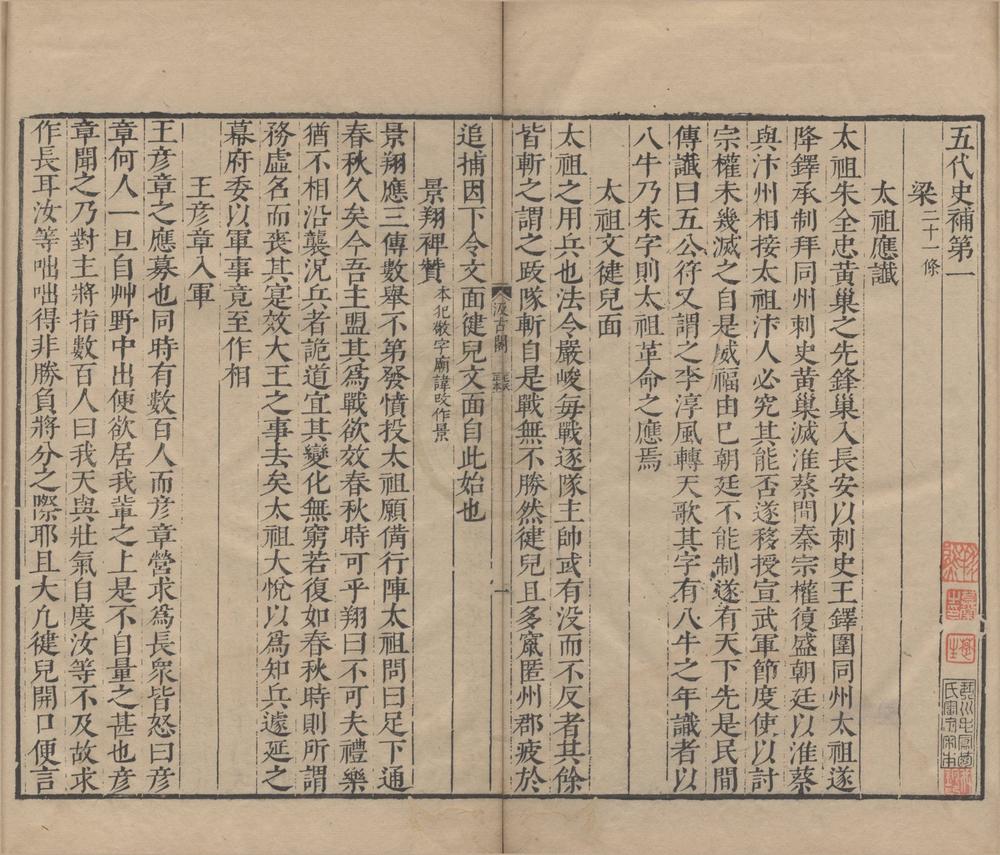 五代史補第一
梁二十一條
太祖應讖
太祖朱全忠黃巢之先鋒巢入長安以刺史王鐸圍同州太祖遂
降鐸承制拜同州刺史黃巢滅淮蔡間秦宗權復盛朝廷以淮蔡
與汴州相接太祖汴人必究其能否遂移授宣武軍節度使以討
宗權未幾滅之自是威福由巳朝廷不能制遂有天下先是民間
傳讖曰五公符又謂之李淳風轉天歌其字有八牛之年識者以
八牛乃朱字則太祖革命之應焉
太祖文徤兒面
太祖之用兵也法令嚴峻每戰逐隊主帥或有没而不反者其餘
皆斬之謂之䟦隊斬自是戰無不勝然徤兒且多竄匿州郡疲於
汲古閣
一
追捕因下令文面徤兒文面自此始也
景翔裨贊本犯敬字廟諱改作景
景翔應三傳數舉不第發憤投太祖願備行陣太祖問曰足下通
春秋久矣今吾主盟其爲戰欲效春秋時可乎翔曰不可夫禮樂
猶不相沿襲況兵者詭道宜其變化無窮若復如春秋時則所謂
務虚名而喪其寔效大王之事去矣太祖大悅以爲知兵遽延之
幕府委以軍事竟至作相
王彦章入軍
王彦章之應募也同時有數百人而彦章營求爲長衆皆怒曰彦
章何人一旦自艸野中出便欲居我輩之上是不自量之甚也彦
章聞之乃對主將指數百人曰我天與壯氣自度汝等不及故求
作長耳汝等咄咄得非勝負將分之際耶且大凢徤兒開口便言